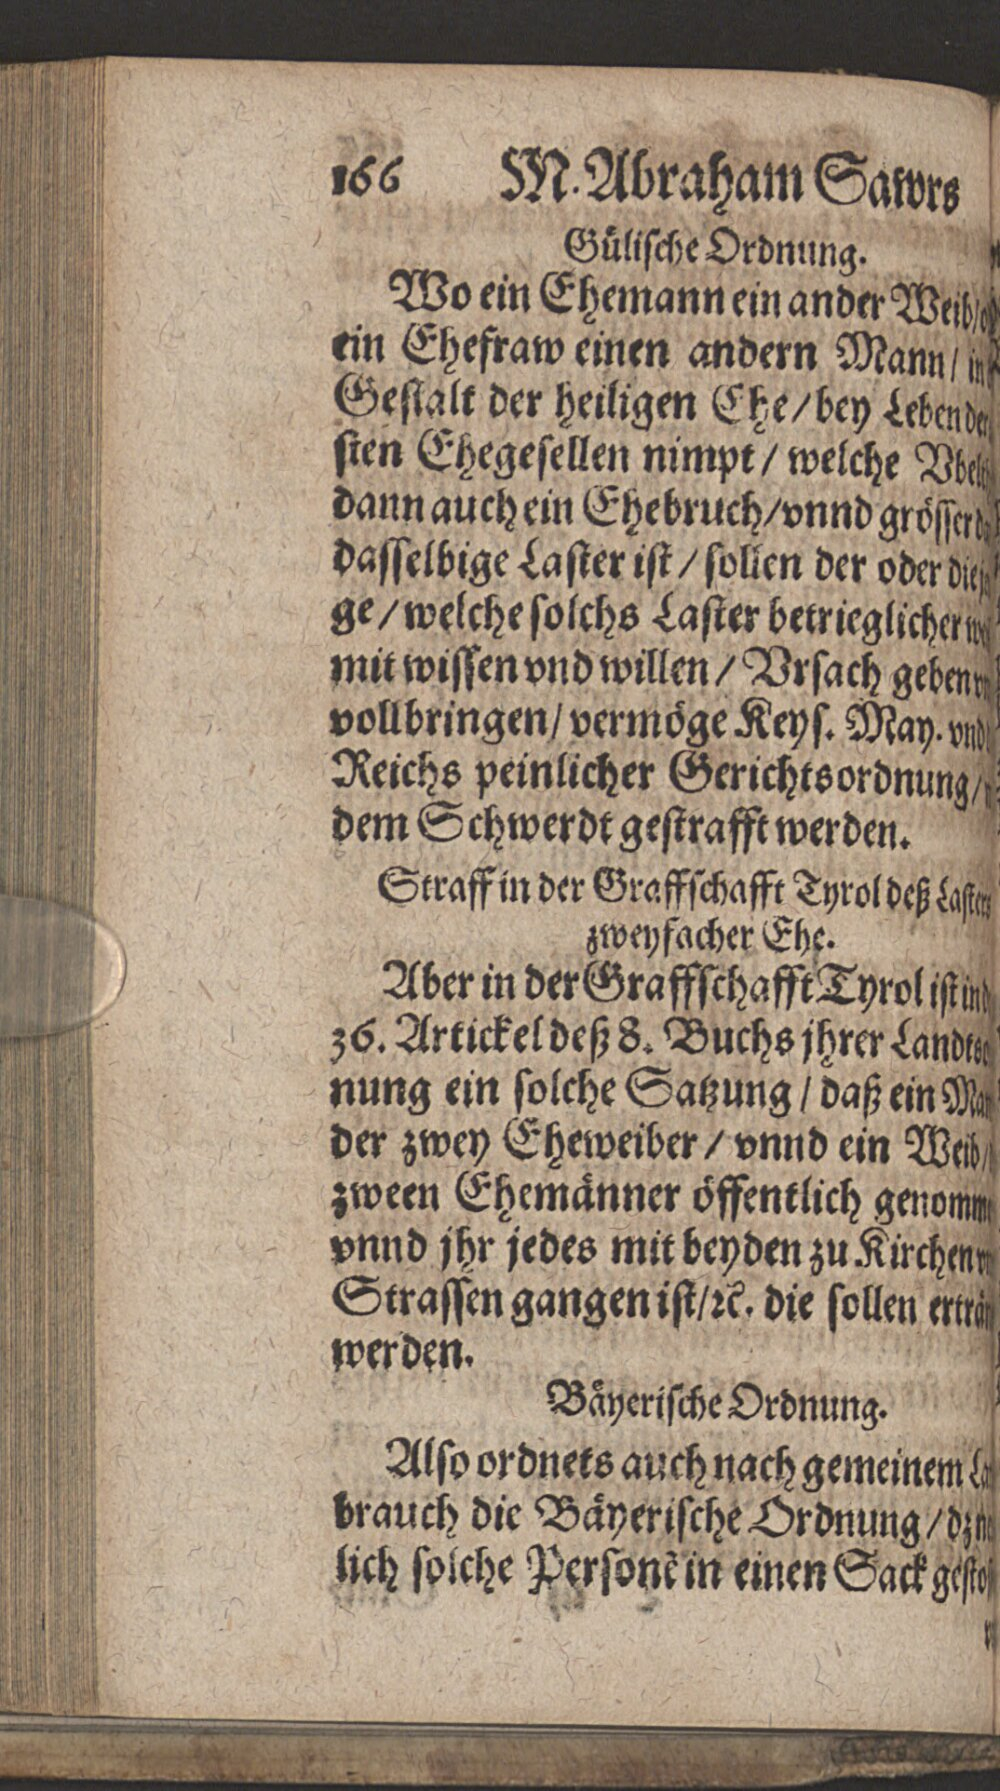 166 M. Abraham Sawrs
Gülische Ordnung.
Wo ein Ehemann ein ander Weib/
ein Ehefraw einen andern Mann/ in
Gestalt der heiligen Ehe/ bey Leben
sten Ehegesellen nimpt/ welche
dann auch ein Ehebruch/ vnnd grösser
dasselbige Laster ist/ sollen der oder
ge/ welche solchs Laster betrieglicher
mit wissen vnd willen/ Vrsach geben
vollbringen/ vermöge Keys. May. vnd
Reichs peinlicher Gerichtsordnung/
dem Schwerdt gestrafft werden.
Straff in der Graffschafft Tyrol deß Lasters
zweyfacher Ehe.
Aber in der Graffschafft Tyrol ist in
36. Artickel deß 8. Buchs jhrer
nung ein solche Satzung/ daß ein
der zwey Eheweiber/ vnnd ein Weib/
zween Ehemänner öffentlich
vnnd jhr jedes mit beyden zu Kirchen
Strassen gangen ist/ ꝛc. die sollen
werden.
Bäyerische Ordnung.
Also ordnets auch nach gemeinem
brauch die Bäyerische Ordnung/ dz
lich solche Personẽ in einen Sack